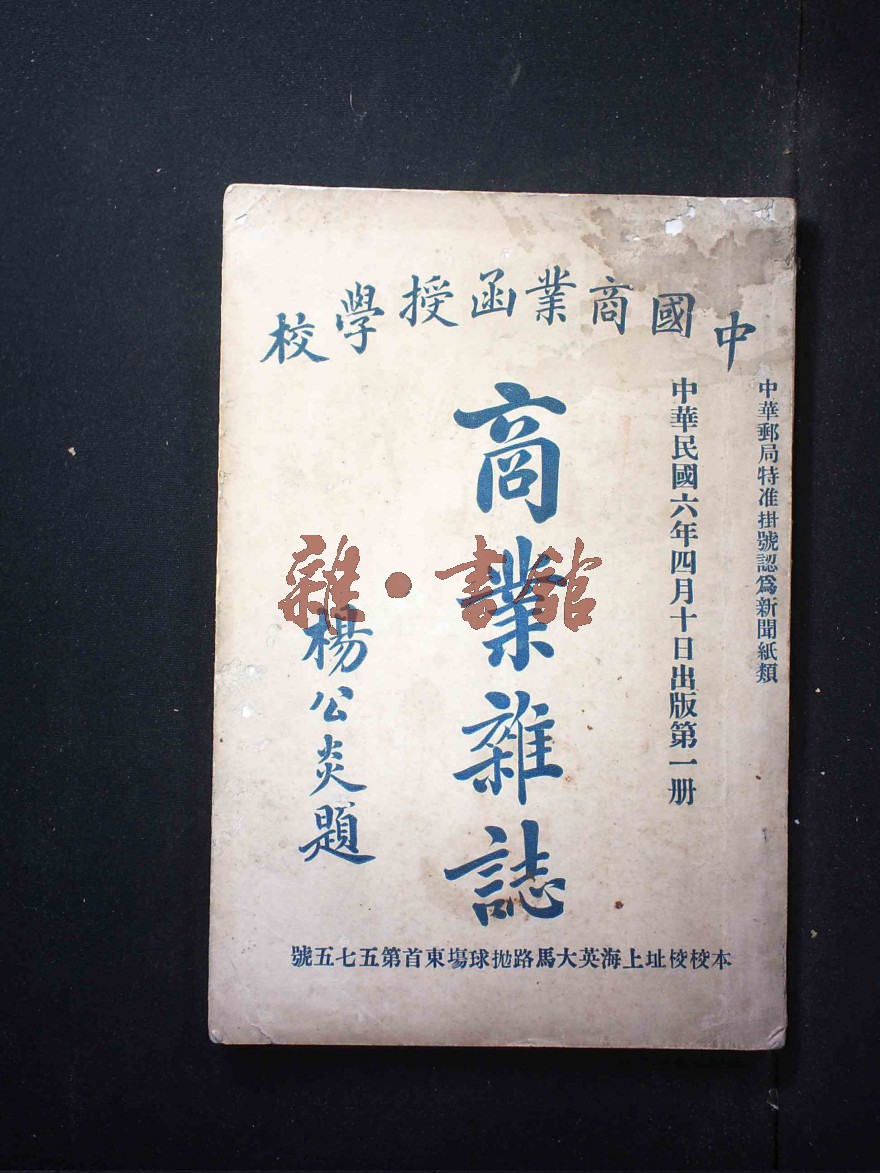 中國商業函授學校
中華郵局特准掛號認爲新聞紙類
中華民國六年四月十日出版第一册
商業雜誌
楊公炎題
雜·書館
本校校址上海英大馬路拋球塲東首第五七五號